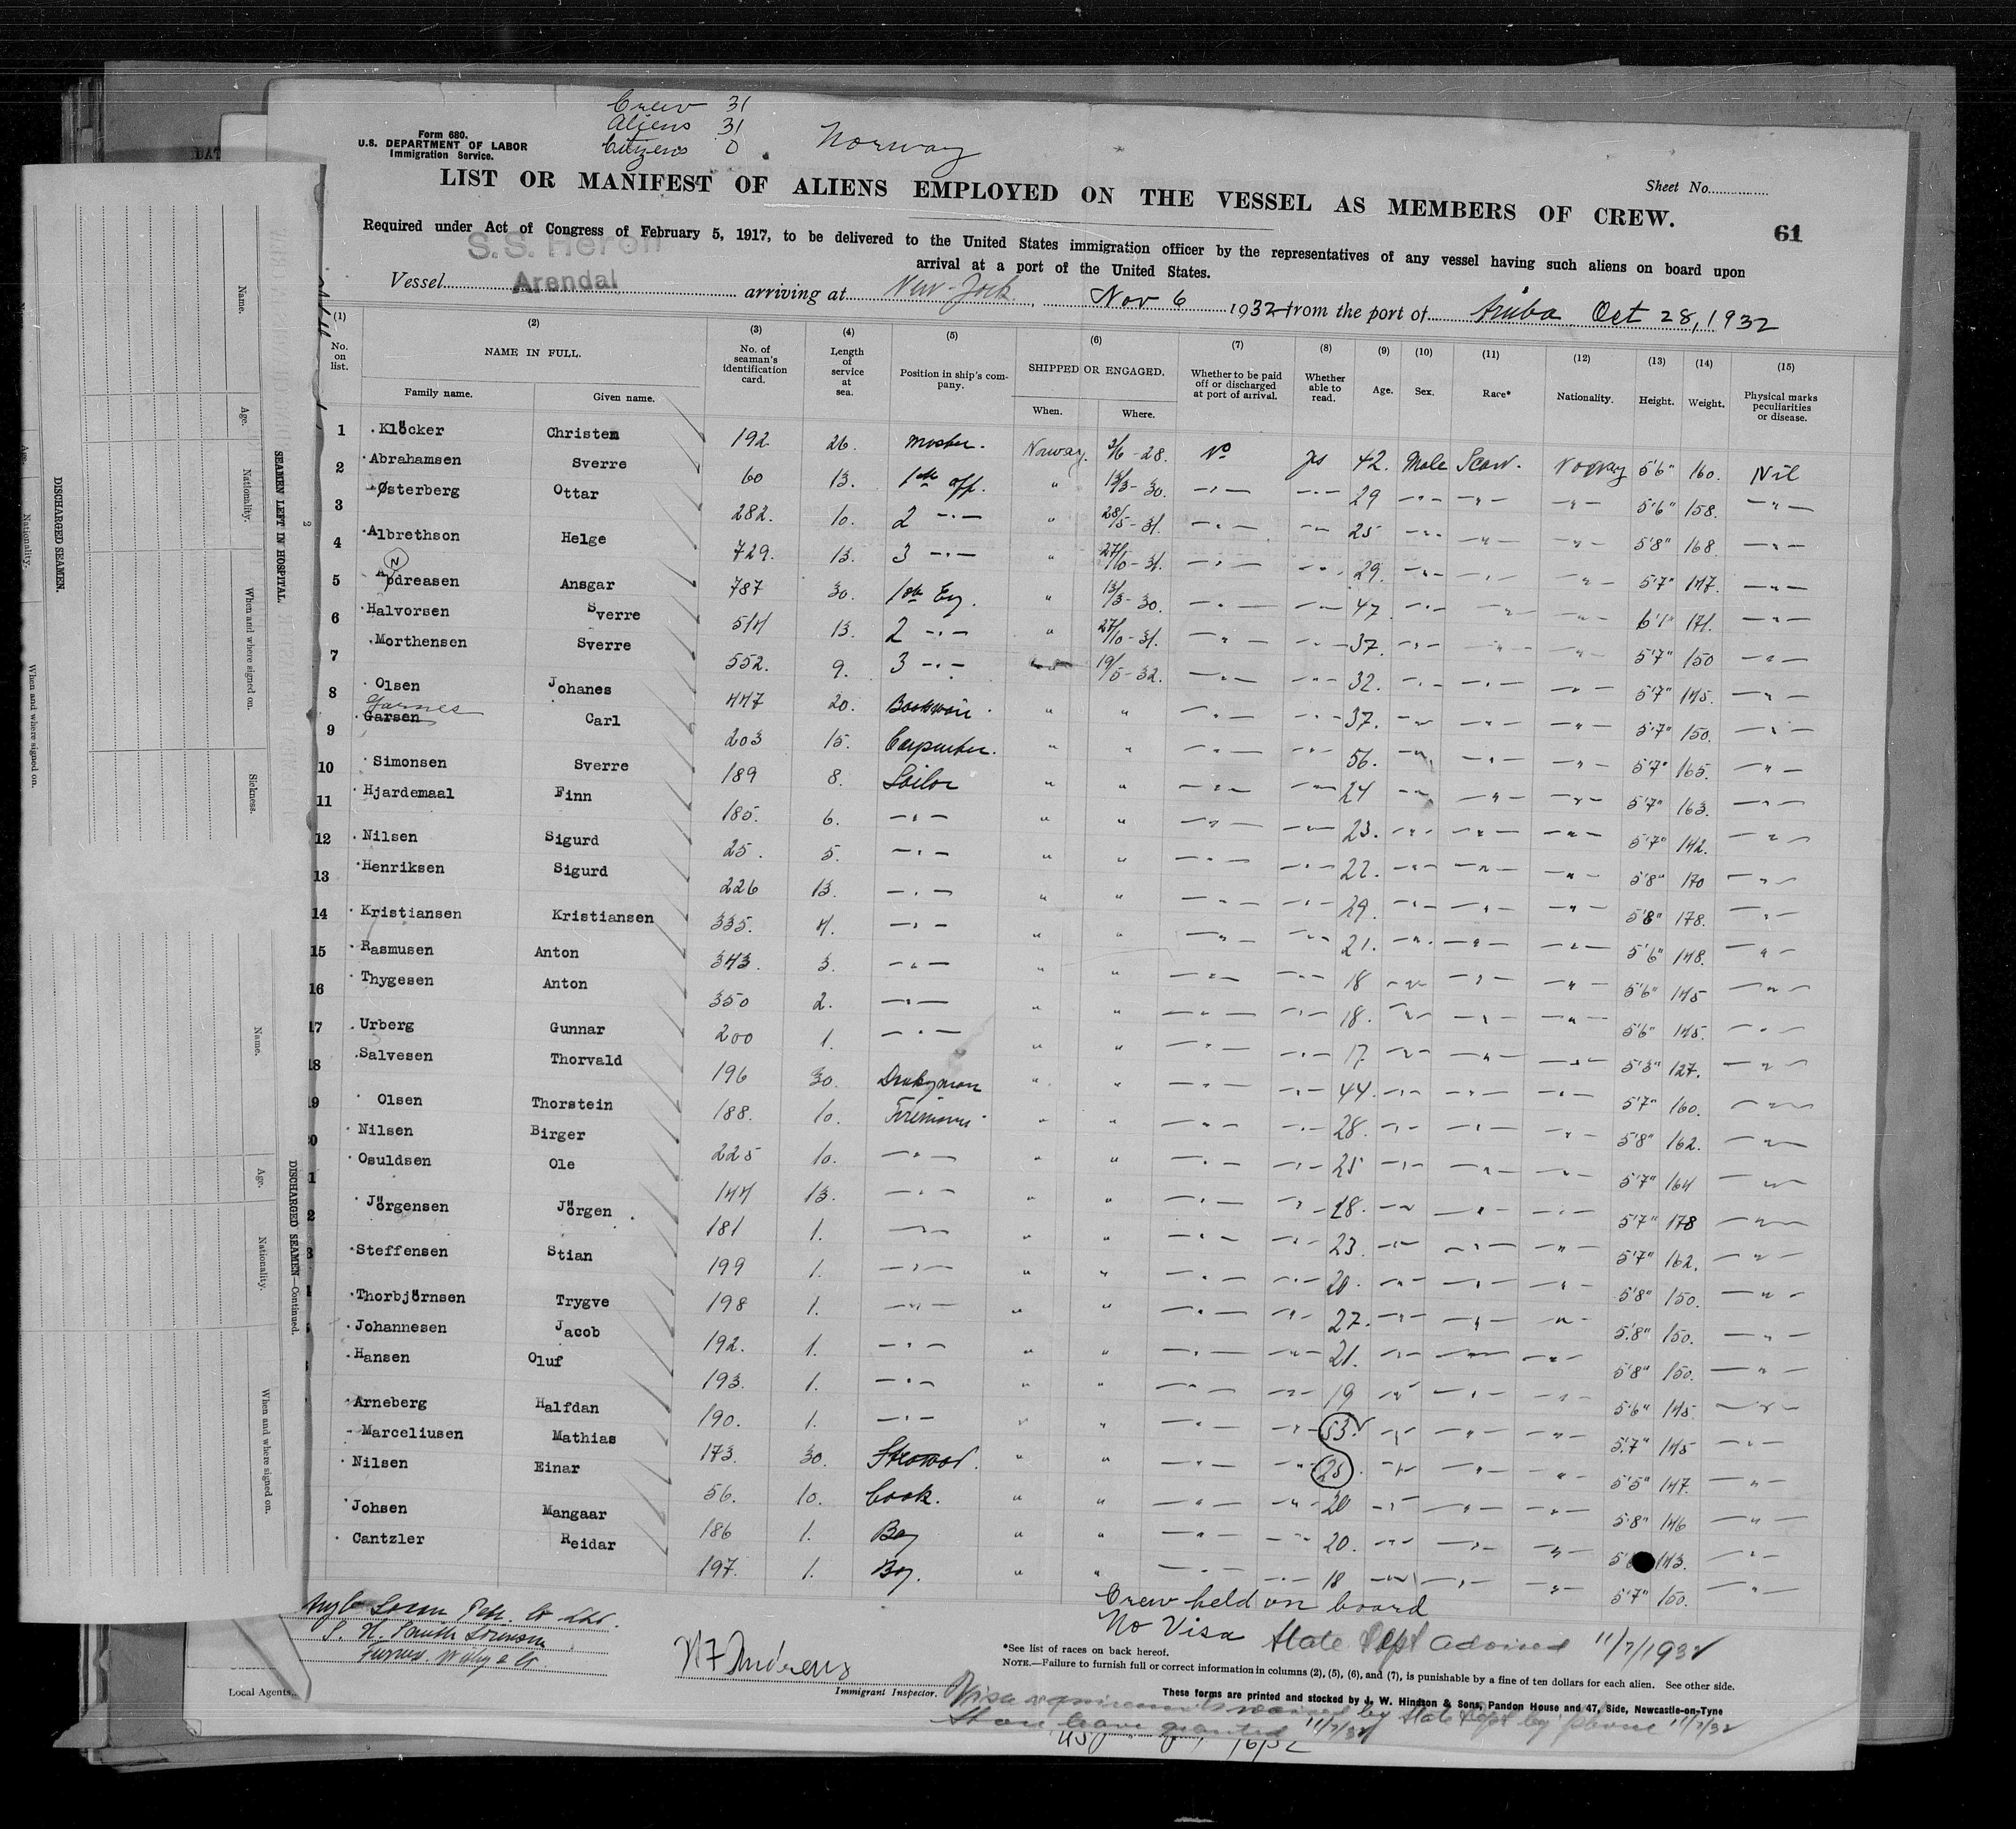 Crew 31
Aliens 31
Citizens 0
Norway
Form 680.
U.S. DEPARTMENT OF LABOR
Immigration Service.
Sheet No.
LIST OR MANIFEST OF ALIENS EMPLOYED ON THE VESSEL AS MEMBERS OF CREW.
61
Required under Act of Congress of February 5, 1917, to be delivered to the United States immigration officer by the representatives of any vessel having such aliens on board upon
arrival at a port of the United States.
S.S. Heron
Arendal
Vessel arriving at New-York Nov 6 1932 from the port of Aruba Oct 28, 1932
(1) (2) (3) (4) (5) (6) (7) (8) (9) (10) (11) (12) (13) (14) (15)
No. on list. NAME IN FULL. Family name. Given name. No. of seaman's identification card. Length of service at sea. Position in ship's company. SHIPPED OR ENGAGED. When. Where. Whether to be paid off or discharged at port of arrival. Whether able to read. Age. Sex. Race* Nationality. Height. Weight. Physical marks peculiarities or disease.
1 Klöcker Christen 192 26. Master. Norway. 3/6-28. No yes 42. Male Scan. Norway 5'6" 160. Nil
2 Abrahamsen Sverre 60 13. 1ste off. " 13/3-30. -"- -"- 29 -"- -"- -"- 5'6" 158. -"-
3 Østerberg Ottar 282. 10. 2 -"- " 28/5-31. -"- -"- 25 -"- -"- -"- 5'8" 168 -"-
4 Albrethson Helge 729. 13. 3 -"- " 27/10-31. -"- -"- 29. -"- -"- -"- 5'7" 147. -"-
N
5 Apdreasen Ansgar 787 30. 1ste Eng. " 13/3-30. -"- -"- 47. -"- -"- -"- 6'1" 171. -"-
6 Halvorsen Sverre 514 13. 2 -"- " 27/10-31. -"- -"- 37. -"- -"- -"- 5'7" 150 -"-
7 Morthensen Sverre 552. 9. 3 -"- 19/5-32. -"- -"- 32. -"- -"- -"- 5'7" 145. -"-
8 Olsen Johanes 447 20. " " -"- -"- 37. -"- -"- -"- 5'7" 150. -"-
Garnes
9 Garsen Carl 203 15. Carpenter. " " -"- -"- 56. -"- -"- -"- 5'7" 165. -"-
10 Simonsen Sverre 189 8. Sailor " " -"- -"- 24 -"- -"- -"- 5'7" 163. -"-
11 Hjardemaal Finn 185. 6. -"- " " -"- -"- 23. -"- -"- -"- 5'7" 142. -"-
12 Nilsen Sigurd 25. 5. -"- " " -"- -"- 22. -"- -"- -"- 5'8" 170 -"-
13 Henriksen Sigurd 226 13. -"- " " -"- -"- 29. -"- -"- -"- 5'8" 178. -"-
14 Kristiansen Kristiansen 335. 4. -"- " " -"- -"- 21. -"- -"- -"- 5'6" 148. -"-
15 Rasmusen Anton 343. 3. -"- " " -"- -"- 18 -"- -"- -"- 5'6" 145 -"-
16 Thygesen Anton 350 2. -"- " " -"- -"- 18. -"- -"- -"- 5'6" 145. -"-
17 Urberg Gunnar 200 1. -"- " " -"- -"- 17 -"- -"- -"- 5'3" 127. -"-
18 Salvesen Thorvald 196 30. Donkeyman " " -"- -"- 44. -"- -"- -"- 5'7" 160. -"-
19 Olsen Thorstein 188. 10. Fireman " " -"- -"- 28. -"- -"- -"- 5'8" 162. -"-
20 Nilsen Birger 225 10. -"- " " -"- -"- 25 -"- -"- -"- 5'7" 164 -"-
1 Osuldsen Ole 144 13. -"- " " -"- -"- 28. -"- -"- -"- 5'7" 178 -"-
2 Jörgensen Jörgen 181 1. -"- " " -"- -"- 23. -"- -"- -"- 5'7" 162. -"-
3 Steffensen Stian 199 1. -"- " " -"- -"- 20. -"- -"- -"- 5'8" 150. -"-
Thorbjörnsen Trygve 198 1. -"- " " -"- -"- 27. -"- -"- -"- 5'8" 150. -"-
Johannesen Jacob 192. 1. -"- " " -"- -"- 21. -"- -"- -"- 5'8" 150. -"-
Hansen Oluf 193. 1. -"- " " -"- -"- 19 -"- -"- -"- 5'6" 145. -"-
Arneberg Halfdan 190. 1. -"- " " -"- -"- 53. -"- -"- -"- 5'7" 145 -"-
Marceliusen Mathias 173. 30. Steward. " " -"- -"- 25. -"- -"- -"- 5'5" 147. -"-
Nilsen Einar 56. 10. Cook. " " -"- -"- 20 -"- -"- -"- 5'8" 146 -"-
Johsen Mangaar 186 1. Boy " " -"- -"- 20. -"- -"- -"- 143. -"-
Cantzler Reidar 197. 1. Boy. " " -"- -"- 18 -"- -"- -"- 5'7" 150. -"-
Crew held on board
No Visa State Dept advised 11/7/1932
Furness Withy & Co
Local Agents.
Immigrant Inspector.
*See list of races on back hereof.
NOTE.—Failure to furnish full or correct information in columns (2), (5), (6), and (7), is punishable by a fine of ten dollars for each alien. See other side.
These forms are printed and stocked by J. W. Hindson & Sons, Pandon House and 47, Side, Newcastle-on-Tyne
Visa requirements waived by State Dept by phone 11/7/32
Shore leave granted 11/7/32
DISCHARGED SEAMEN.
Nationality.
When and where signed on.
SEAMEN LEFT IN HOSPITAL.
Name.
Age.
Nationality.
When and where signed on.
Sickness.
2
DISCHARGED SEAMEN—Continued.
Name.
Age.
Nationality.
When and where signed on.